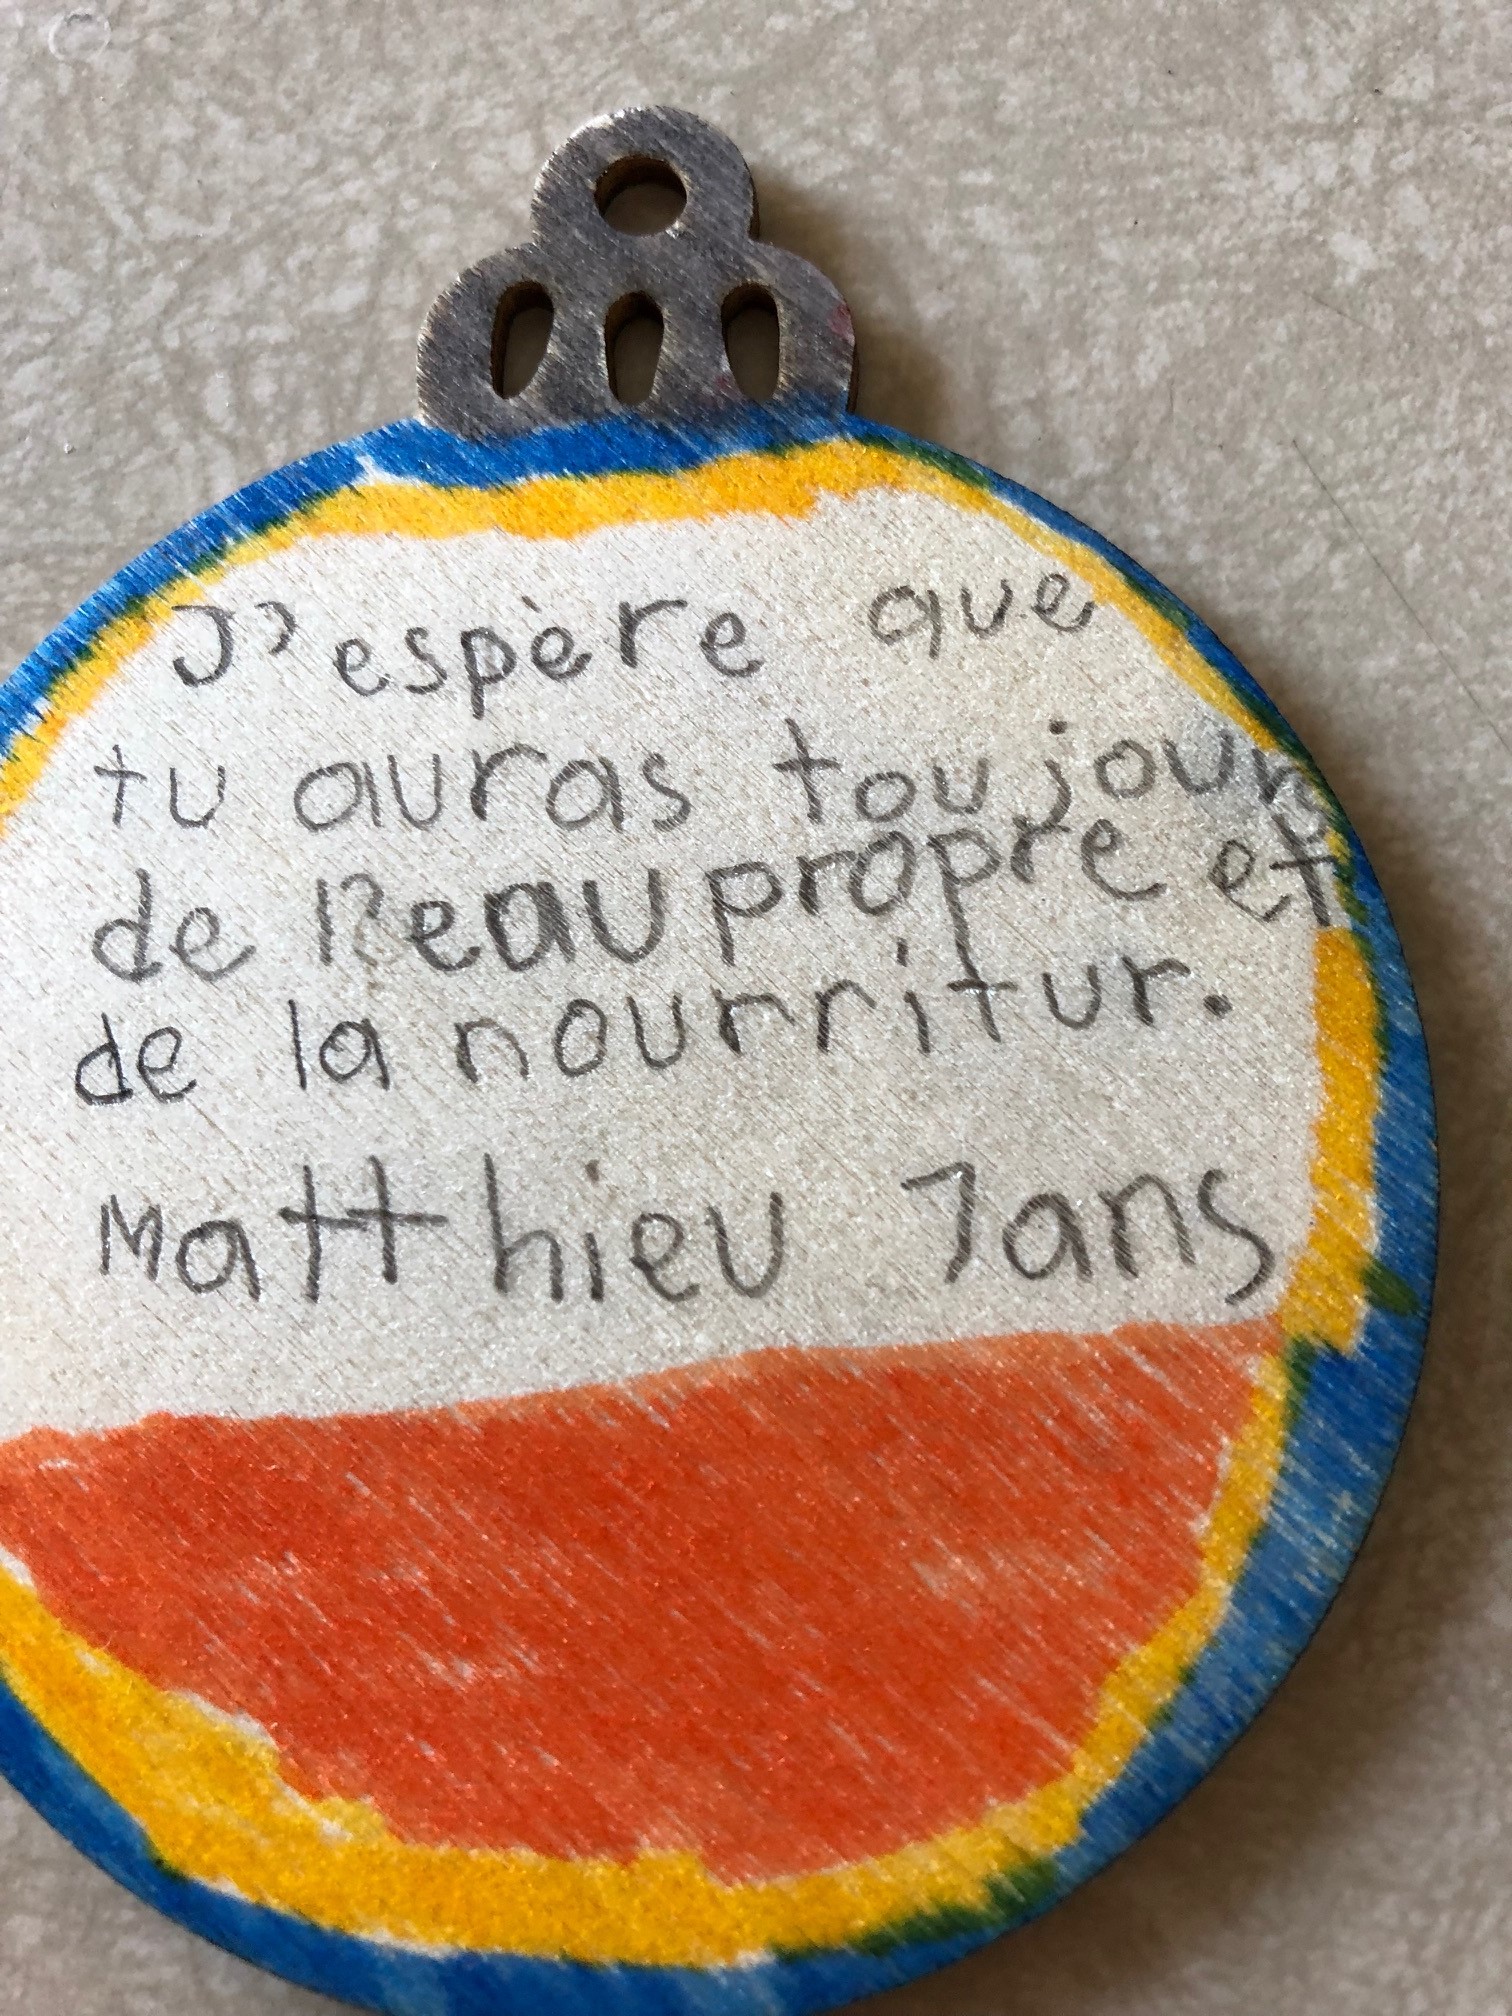 J'espère que
tu auras toujours
de l'eau propre et
de la nourritur.
Matthieu 7ans